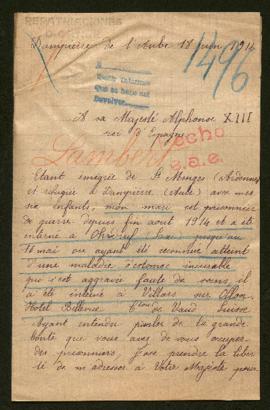 REPATRIACIONES
Dampierre de l'Aube 18 juin 1914
1496
Quede informado
Que se hace así
Devolver
A sa Majesté Alphonse XIII
roi d'Espagne
echo
Lambert
s.a.e.
Etant émigrée de St Menges (Ardennes)
et réfugiée à Dampierre (Aube) avec mes
six enfants, mon mari est prisonnier
de guerre depuis fin août 1914 et a été
interné à Ohrdruf Saxe jusqu'au
16 mai ou ayant été reconnu atteint
d'une maladie d'estomac incurable
qui s'est aggravée faute de soins, il
a été interné à Villars sur Ollon
Hôtel Bellevue Cton de Vaud Suisse
Ayant entendu parler de la grande
bonté que vous avez de vous occuper
des prisonniers, j'ose prendre la liber
té de m'adresser à Votre Majesté pour